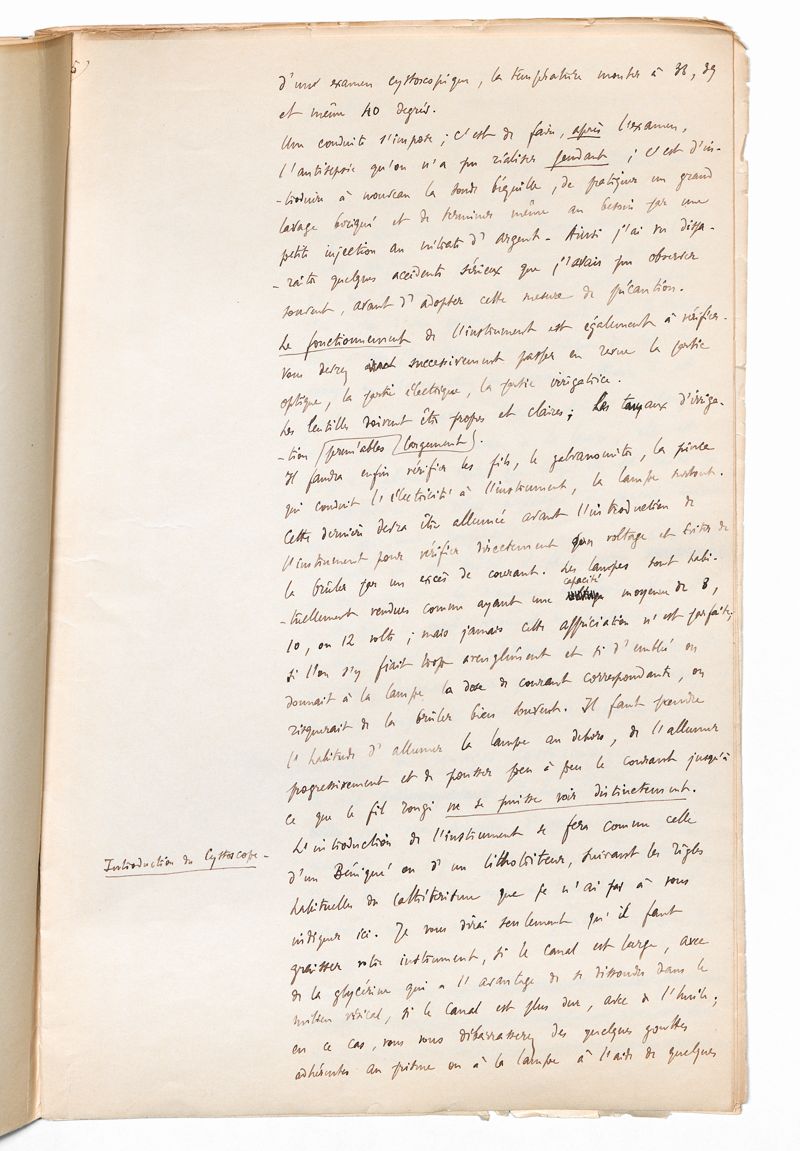 5)
d'un examen cystoscopique, la température monter à 38, 39
et même 40 degrés.
Une conduite s'impose ; c'est de faire, après l'examen,
l'antisepsie qu'on n'a pu réaliser pendant ; c'est d'in-
-troduire à nouveau la sonde béquille, de pratiquer un grand
lavage boriqué et de terminer même au besoin par une
petite injection au nitrate d'argent - Ainsi j'ai vu dispa-
-raître quelques accidents sérieux que j'avais pu observer
souvent, avant d'adopter cette mesure de précaution.
Le fonctionnement de l'instrument est également à vérifier.
Vous devrez successivement passer en revue la partie
optique, la partie électrique, la partie irrigatrice.
Les lentilles doivent être propres et claires ; Les tuyaux d'irriga-
-tion perméables largement.
Il faudra enfin vérifier les fils, le galvanomètre, la pince
qui conduit l'électricité à l'instrument, la lampe surtout.
Cette dernière devra être allumée avant l'introduction de
l'instrument pour vérifier directement son voltage et éviter de
la brûler par un excès de courant. Les lampes sont habi-
-tuellement vendues comme ayant une capacité moyenne de 8,
10, ou 12 volts ; mais jamais cette appréciation n'est parfaite,
si l'on s'y fiait trop aveuglément et si d'emblée on
donnait à la lampe la dose de courant correspondante, on
risquerait de la brûler bien souvent. Il faut prendre
l'habitude d'allumer la lampe au dehors, de l'allumer
progressivement et de pousser peu à peu le courant jusqu'à
ce que le fil rougi ne se puisse voir distinctement.
Introduction du Cystoscope -
L'introduction de l'instrument se fera comme celle
d'un Béniqué ou d'un lithotriteur, suivant les règles
habituelles du cathétérisme que je n'ai pas à vous
indiquer ici. Je vous dirai seulement qu'il faut
graisser votre instrument, si le canal est large, avec
de la glycérine qui a l'avantage de se dissoudre dans le
milieu vésical, si le canal est plus dur, avec de l'huile ;
en ce cas, vous vous débarrasserez des quelques gouttes
adhérentes au prisme ou à la lampe à l'aide de quelques